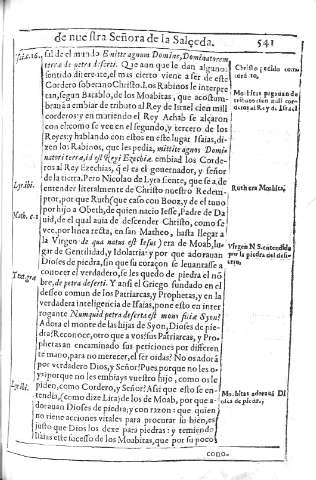 de nuestra Señora de la Salceda. 541
Isai. 16.
sal de el mundo Emitte agnum Domine, Dominatorem
terræ de petra deserti. Que aun que le dan algunos
sentido diferente, el mas cierto viene a ser de este
Cordero soberano Christo. Los Rabinos le interpre
tan, segun Batablo, de los Moabitas, que acostum
brauan a embiar de tributo al Rey de Israel cien mill
corderos: y en muriendo el Rey Achab se alçaron
con el: como se vee en el segundo, y tercero de los
Reyes: y hablando con estos en este lugar Isaias, di-
zen los Rabinos, que les pedia, mittite agnus Domi
natori terræ, id est Regi Ezechiæ. embiad los Corde-
ros al Rey Ezechias, que es el gouernador, y señor
de la tierra. Pero Nicolao de Lyra siente, que se a de
entender literalmente de Christo nuestro Redem-
ptor, por que Ruth que caso con Booz, y de el tuuo
por hijo a Obeth, de quien nacio Iesse, Padre de Da
uid, de el qual auia de descender Christo, como se
vee, por linea recta, en san Matheo, hasta llegar a
la Virgen de qua natus est Iesus) era de Moab, lu-
gar de Gentilidad, y Idolatria: y por que adorauan
Dioses de piedra, sin que su coraçon se leuantasse a
conocer el verdadero, se les quedo de piedra el nõ
bre, de petra deserti. Y ansi el Griego fundado en el
desseo comun de los Patriarcas, y Prophetas, y en la
verdadera inteligencia de Isaias, pone esto en inter
rogante Numquid petra deserta est mons filiæ Syon?
Adora el monte de las hijas de Syon, Dioses de pie-
dra? Reconoce, otro que a vos? sus Patriarcas, y Pro-
phetas an encaminado sus peticiones por differen
te mano, para no merecer, el ser oidas? No os adorã
por verdadero Dios, y Señor? Pues porque no les ois?
y porque no les embiays vuestro hijo, como os le
piden, como Cordero, y Señor? Asi que esto se en-
tendia, (como dize Lira) de los de Moab, por que a-
dorauan Dioses de piedra; y con razon: que quien
no tiene acciones vitales para procurar su bien, es
justo que Dios los dexe para piedras: y temiendo
Isaias este sucesso de los Moabitas, que por su poco
como.
Christo pedido como
Mohabitas pagauan de
Rey de Israel
Lyr. ibi.
Ruth era Moabita,
Math. c. 1
Virgen N. S. entendida
por la piedra del desi-
erto,
Text. gre
Lyr. ibi.
Moabitas adorauã Di
oses de piedra,